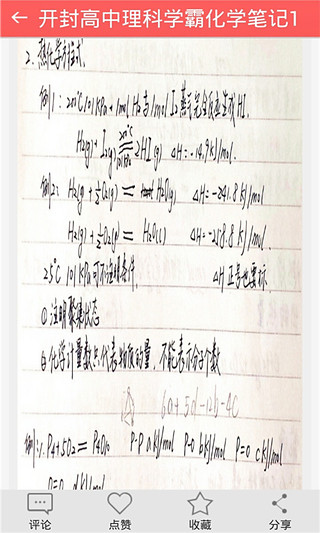 ← 开封高中理科学霸化学笔记1
2. 热化学方程式
例1: 200℃ 101KPa 1mol H₂与1mol I₂蒸气完全反应生成HI.
H₂(g) + I₂(g) 200℃ 101KPa 2HI(g) ΔH=-14.9KJ/mol.
例2: H₂(g)+½O₂(g) = H₂O(g) ΔH=-241.8KJ/mol
H₂(g)+½O₂(g) = H₂O(l) ΔH=-258.8KJ/mol.
25℃ 101KPa可不注明条件. ΔH正负也要标
①注明聚集状态
②化学计量数只代表物质的量, 不能表示分子个数
6a+5d-12b-4c
例: P₄+5O₂=P₄O₁₀ P-P aKJ/mol P-O bKJ/mol P=O cKJ/mol
O=O dKJ/mol
评论
点赞
收藏
分享